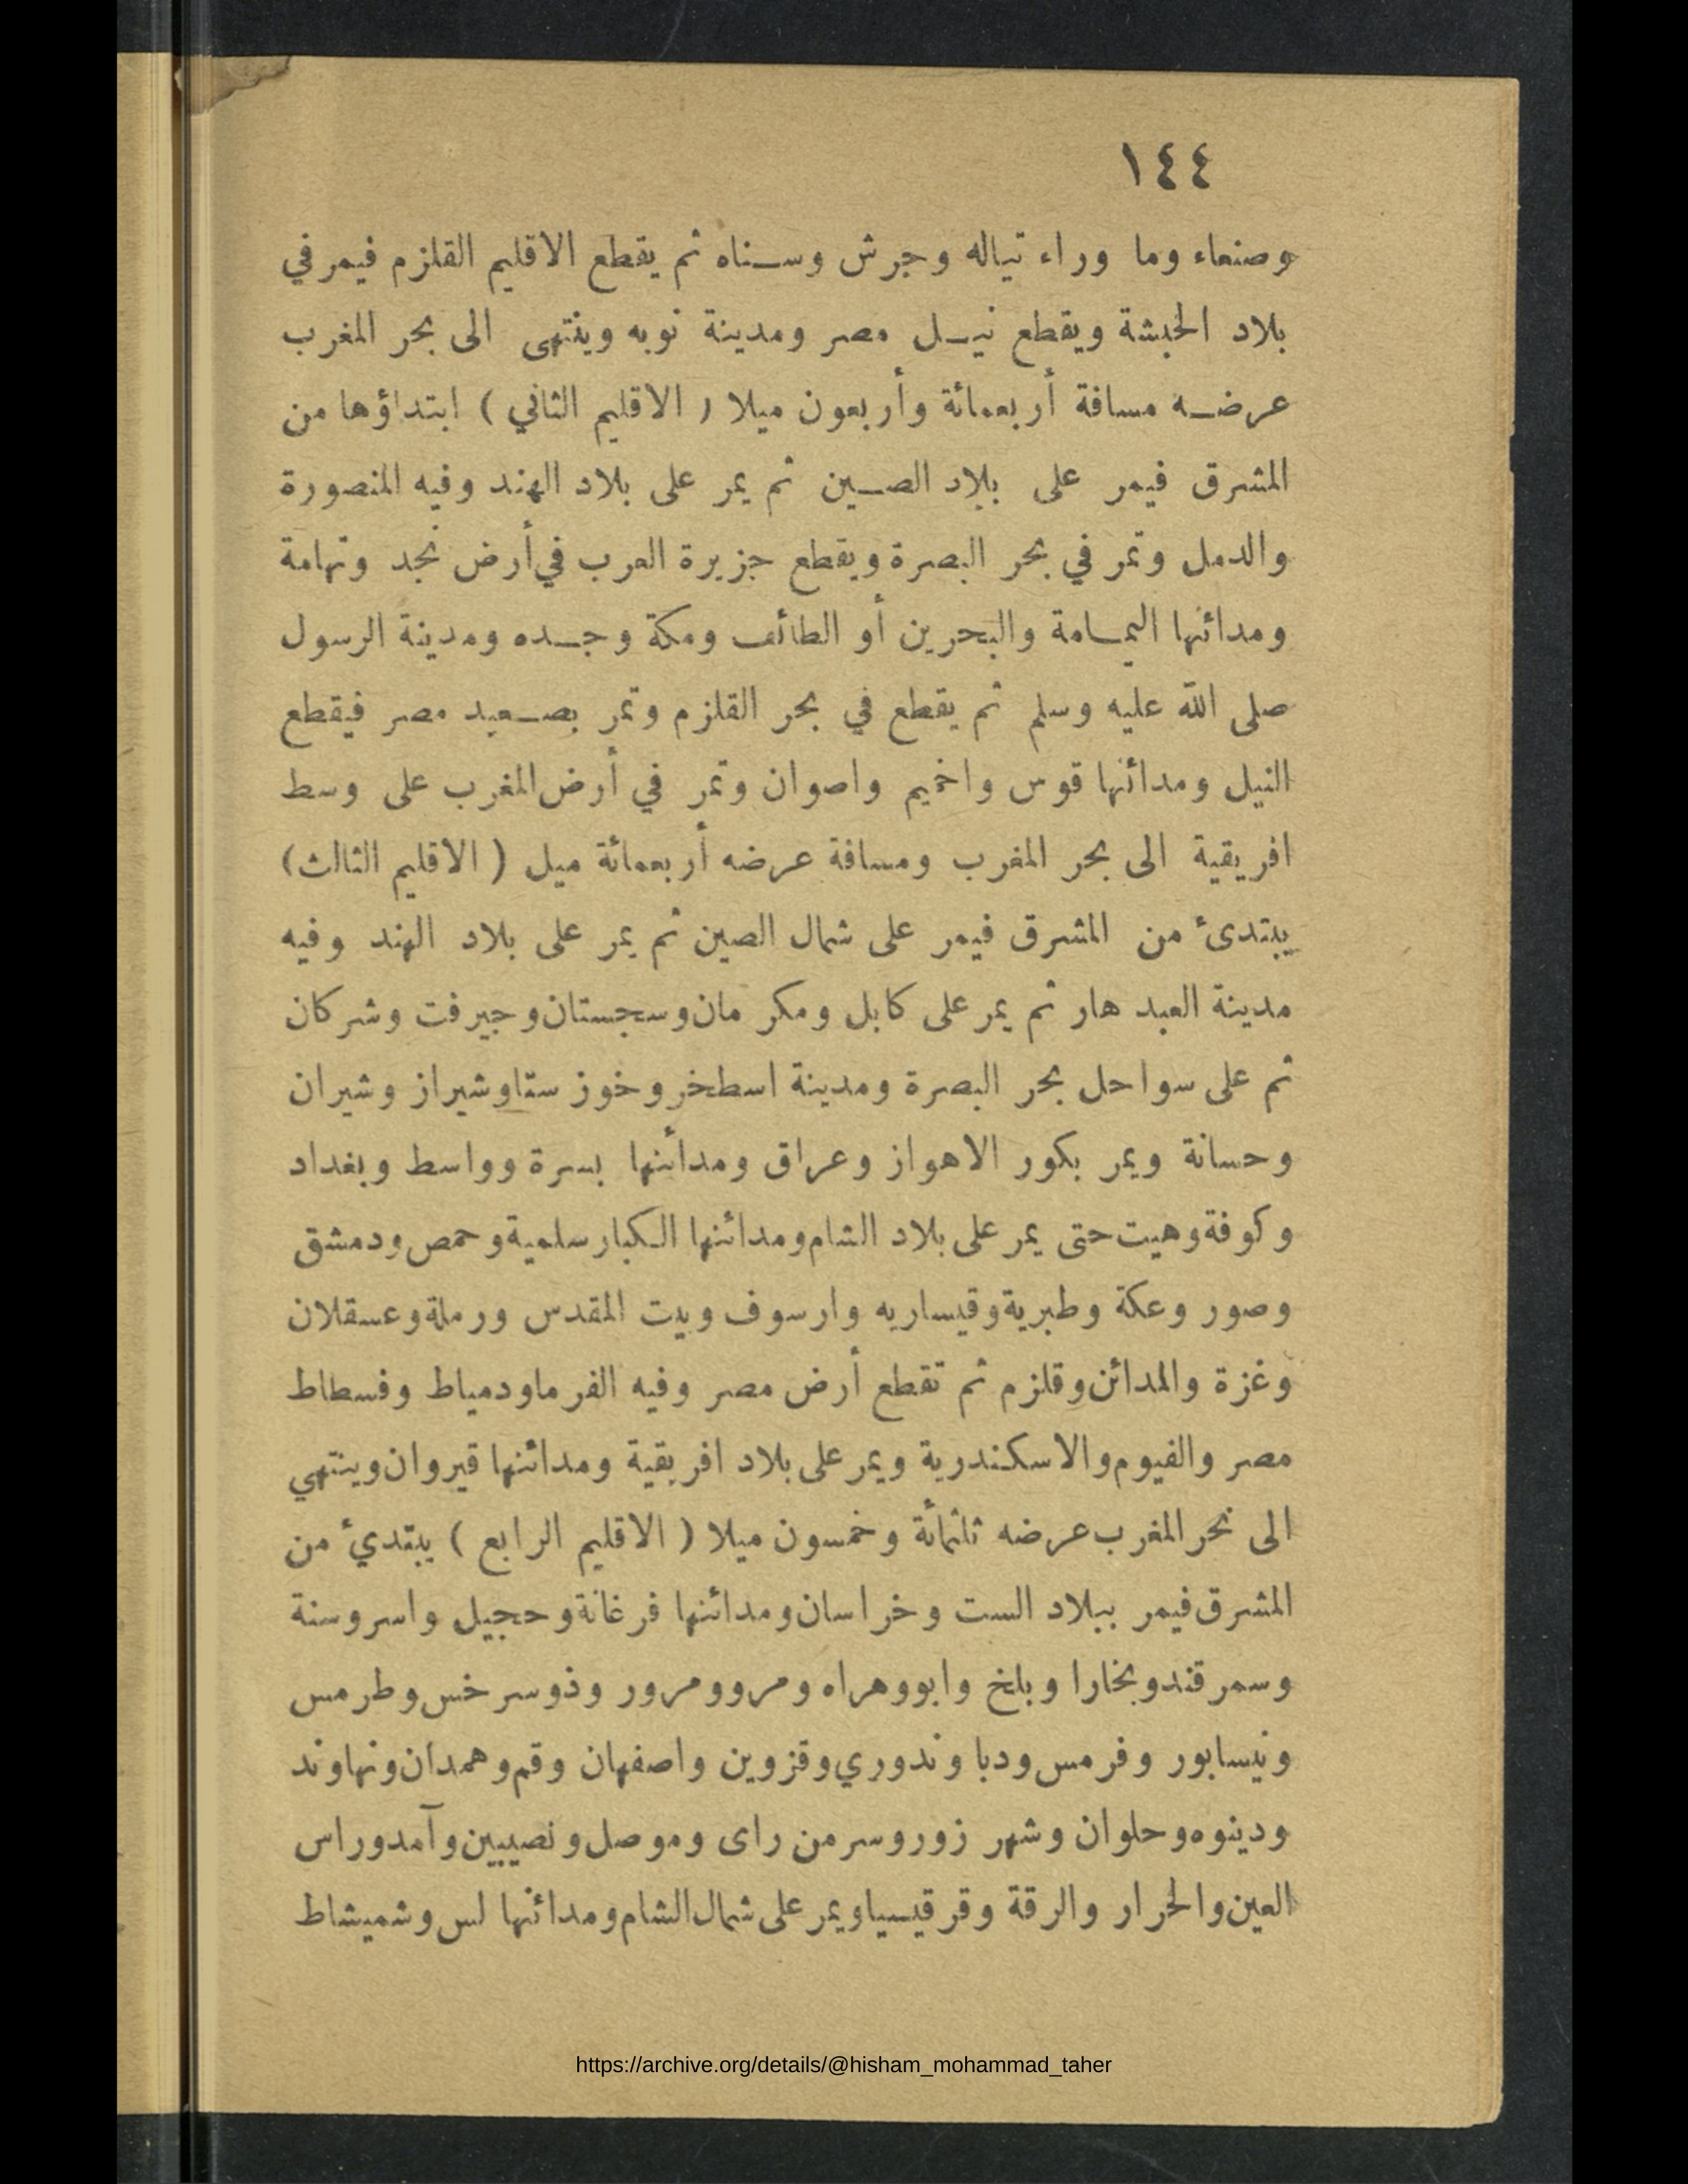 ١٤٤
وصنعاء وما وراء تياله وجرش وسناه ثم يقطع الاقليم القلزم فيمر في
بلاد الحبشة ويقطع نيل مصر ومدينة نوبه وينتهى الى بحر المغرب
عرضه مسافة أربعمائة وأربعون ميلا ( الاقليم الثاني ) ابتداؤها من
المشرق فيمر على بلاد الصين ثم يمر على بلاد الهند وفيه المنصورة
والدمل وتمر في بحر البصرة ويقطع جزيرة العرب في أرض نجد وتهامة
ومدائنها اليمامة والبحرين أو الطائف ومكة وجده ومدينة الرسول
صلى الله عليه وسلم ثم يقطع في بحر القلزم وتمر بصعيد مصر فيقطع
النيل ومدائنها قوس واخميم واصوان وتمر في أرض المغرب على وسط
افريقية الى بحر المغرب ومسافة عرضه أربعمائة ميل ( الاقليم الثالث )
يبتدئ من المشرق فيمر على شمال الصين ثم يمر على بلاد الهند وفيه
مدينة العبد هار ثم يمر على كابل ومكر مان وسجستان وجيرفت وشركان
ثم على سواحل بحر البصرة ومدينة اسطخر وخوز ستا وشيراز وشيران
وحسانة ويمر بكور الاهواز وعراق ومدائنها بسرة وواسط وبغداد
وكوفة وهيت حتى يمر على بلاد الشام ومدائنها الكبار سلمية وحمص ودمشق
وصور وعكة وطبرية وقيساريه وارسوف وبيت المقدس ورملة وعسقلان
وغزة والمدائن وقلزم ثم تقطع أرض مصر وفيه الفرما ودمياط وفسطاط
مصر والفيوم والاسكندرية ويمر على بلاد افريقية ومدائنها قيروان وينتهي
الى نحر المغرب عرضه ثلثمائة وخمسون ميلا ( الاقليم الرابع ) يبتدئ من
المشرق فيمر ببلاد الست وخراسان ومدائنها فرغانة وحجيل واسروسنة
وسمرقند وبخارا وبلخ وابو وهراه ومرو ومرور وذو سرخس وطرمس
ونيسابور وفرمس ودبا وندوري وقزوين واصفهان وقم وهمدان ونهاوند
ودينوه وحلوان وشهر زور وسر من راى وموصل ونصيبين وآمد وراس
العين والحرار والرقة وقرقيسيا ويمر على شمال الشام ومدائنها لس وشميشاط
https://archive.org/details/@hisham_mohammad_taher